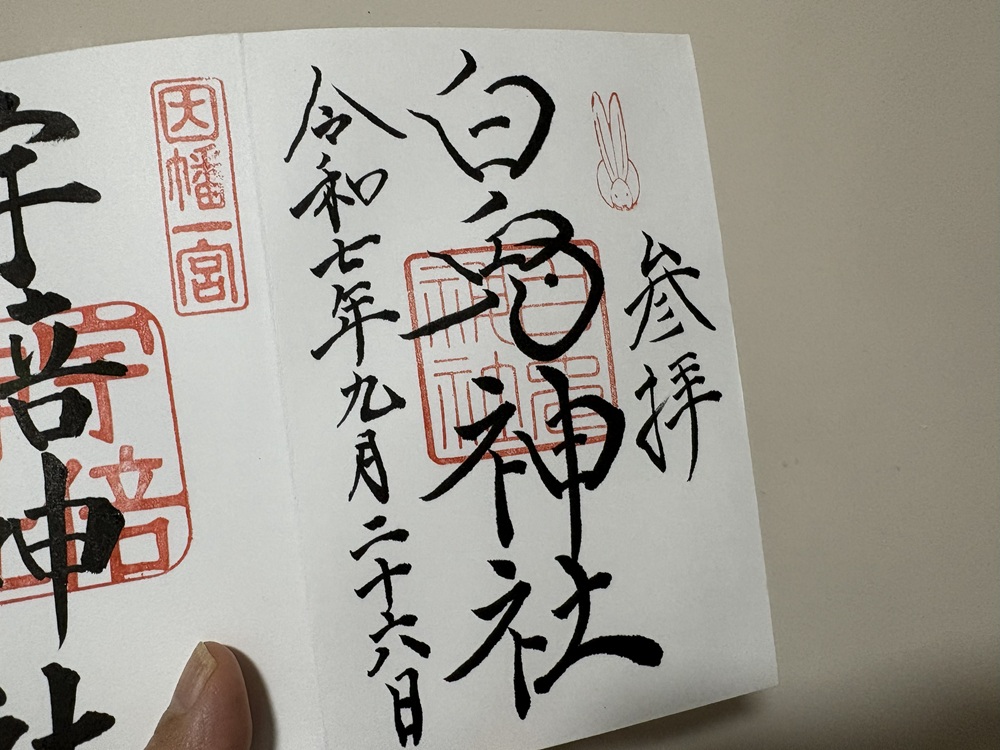 参拝
白兎神社
白兎
神社
令和七年九月二十六日
因幡一宮
宇倍神社
宇倍